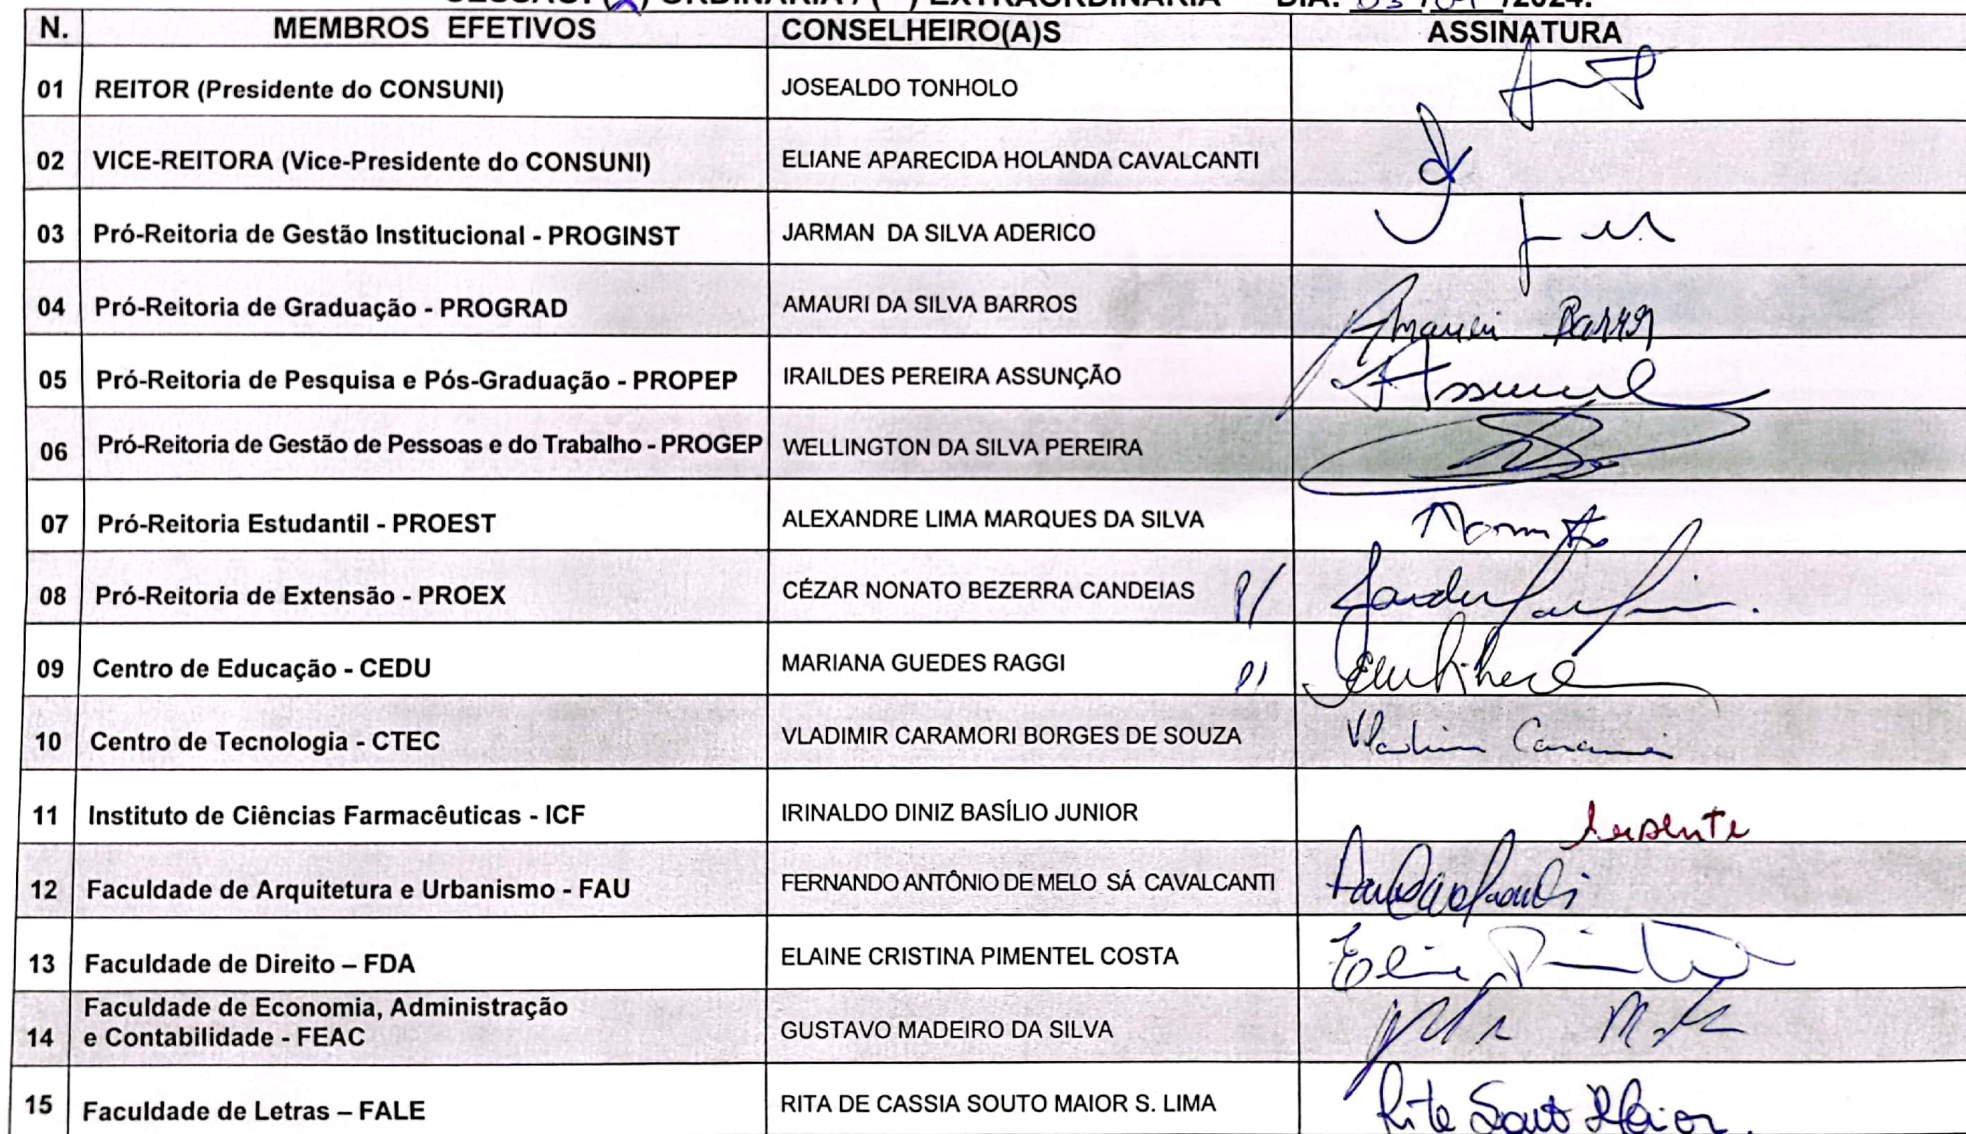 SESSÃO: (X) ORDINÁRIA / ( ) EXTRAORDINÁRIA DIA: 03 / /2024.
N. MEMBROS EFETIVOS CONSELHEIRO(A)S ASSINATURA
01 REITOR (Presidente do CONSUNI) JOSEALDO TONHOLO
02 VICE-REITORA (Vice-Presidente do CONSUNI) ELIANE APARECIDA HOLANDA CAVALCANTI
03 Pró-Reitoria de Gestão Institucional - PROGINST JARMAN DA SILVA ADERICO
04 Pró-Reitoria de Graduação - PROGRAD AMAURI DA SILVA BARROS Amauri Barros
05 Pró-Reitoria de Pesquisa e Pós-Graduação - PROPEP IRAILDES PEREIRA ASSUNÇÃO
06 Pró-Reitoria de Gestão de Pessoas e do Trabalho - PROGEP WELLINGTON DA SILVA PEREIRA
07 Pró-Reitoria Estudantil - PROEST ALEXANDRE LIMA MARQUES DA SILVA
08 Pró-Reitoria de Extensão - PROEX CÉZAR NONATO BEZERRA CANDEIAS P/
09 Centro de Educação - CEDU MARIANA GUEDES RAGGI P/
10 Centro de Tecnologia - CTEC VLADIMIR CARAMORI BORGES DE SOUZA Vladimir Caramori
11 Instituto de Ciências Farmacêuticas - ICF IRINALDO DINIZ BASÍLIO JUNIOR
12 Faculdade de Arquitetura e Urbanismo - FAU FERNANDO ANTÔNIO DE MELO SÁ CAVALCANTI
13 Faculdade de Direito – FDA ELAINE CRISTINA PIMENTEL COSTA
Faculdade de Economia, Administração
14 e Contabilidade - FEAC GUSTAVO MADEIRO DA SILVA
15 Faculdade de Letras – FALE RITA DE CASSIA SOUTO MAIOR S. LIMA Rita Souto Maior.